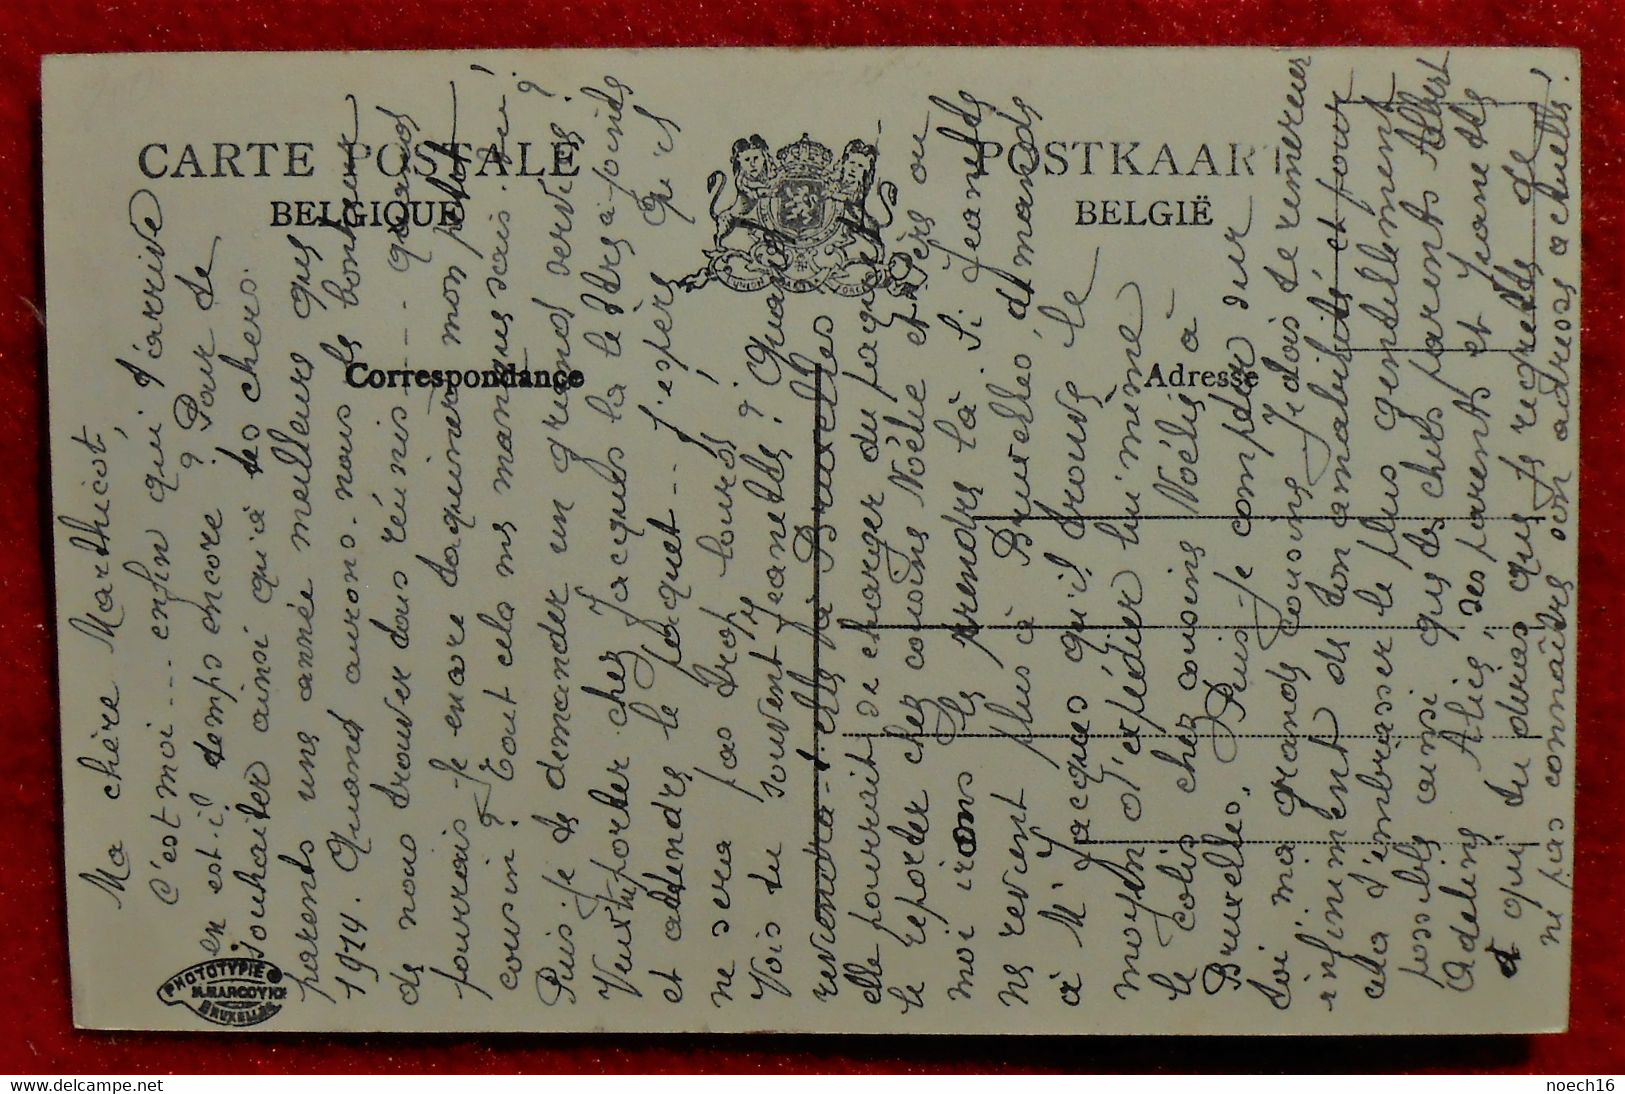 CARTE POSTALE
BELGIQUE
POSTKAART
BELGIË
Correspondance
Adresse
Ma chère Marthicot,
C'est moi... enfin qui t'arrive
en est-il temps encore ? Pour te
souhaiter ainsi qu'à tes chers
parents une année meilleure que
1914. Quand aurons-nous le bonheur
de nous trouver tous réunis... quand
pourrais-je encore taquiner mon petit
cousin ? Tout cela me manque sais-tu !
Puis-je te demander un grand service ?
Veux-tu porter chez Jacques la lettre ci-jointe
et attendre le paquet... j'espère qu'il
ne sera pas trop lourd !
Vois tu souvent Jeannette ? Quand
reviendra-t-elle à Bruxelles ?
elle pourrait se charger du paquet
le reporter chez cousine Noélie et Père ou
moi irons le prendre là. Si Jeannette
ne revient plus à Bruxelles, demande
à Mr Jacques qu'il trouve le
moyen d'expédier lui même
le colis chez cousine Noélie à
Bruxelles. Puis-je compter sur
toi ma grande cousine. Je dois te remercier
infiniment de ton amabilité et pour
cela t'embrasser le plus gentillement
possible ainsi que tes chers parents Albert
Adeline, Alice, ses parents et Jeannette
et qui tu diras que je regrette de
ne pas connaître son adresse actuelle !
PHOTOTYPIE
M. MARCOVICI
BRUXELLES
L'UNION FAIT LA FORCE
noech16
delcampe.net